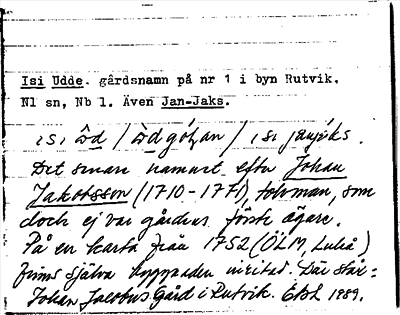 Isi Udde. gårdsnamn på nr 1 i byn Rutvik.
Nl sn, Nb l. Även Jan-Jaks.
isi ôd / òdgóʈan / isi janjáks.
Det senare namnet efter Johan
Jakobsson (1710-1771), tolvman, som
dock ej var gårdens förste ägare.
På en karta från 1752 (ÖLM, Luleå)
finns själva inritad. Där står:
Johan Jacobus Gård i Rutvik. 1989.